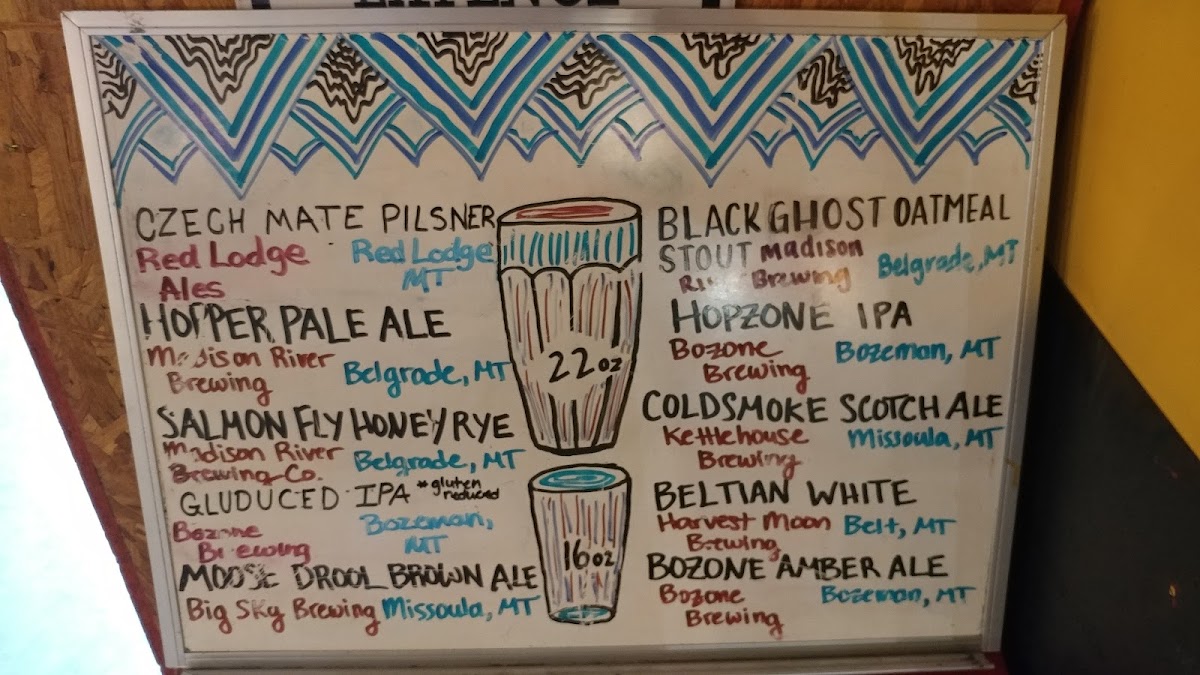 CZECH MATE PILSNER
Red Lodge Ales
Red Lodge MT
HOPPER PALE ALE
Madison River Brewing
Belgrade, MT
SALMON FLY HONEY RYE
Madison River Brewing Co.
Belgrade, MT
GLUDUCED IPA *gluten reduced
Bozone Brewing
Bozeman, MT
MOOSE DROOL BROWN ALE
Big Sky Brewing Missoula, MT
22oz
16oz
BLACK GHOST OATMEAL
STOUT Madison
Brewing
Belgrade, MT
HOPZONE IPA
Bozone Brewing
Bozeman, MT
COLDSMOKE SCOTCH ALE
Kettlehouse Brewing
Missoula, MT
BELTIAN WHITE
Harvest Moon Brewing
Belt, MT
BOZONE AMBER ALE
Bozone Brewing
Bozeman, MT